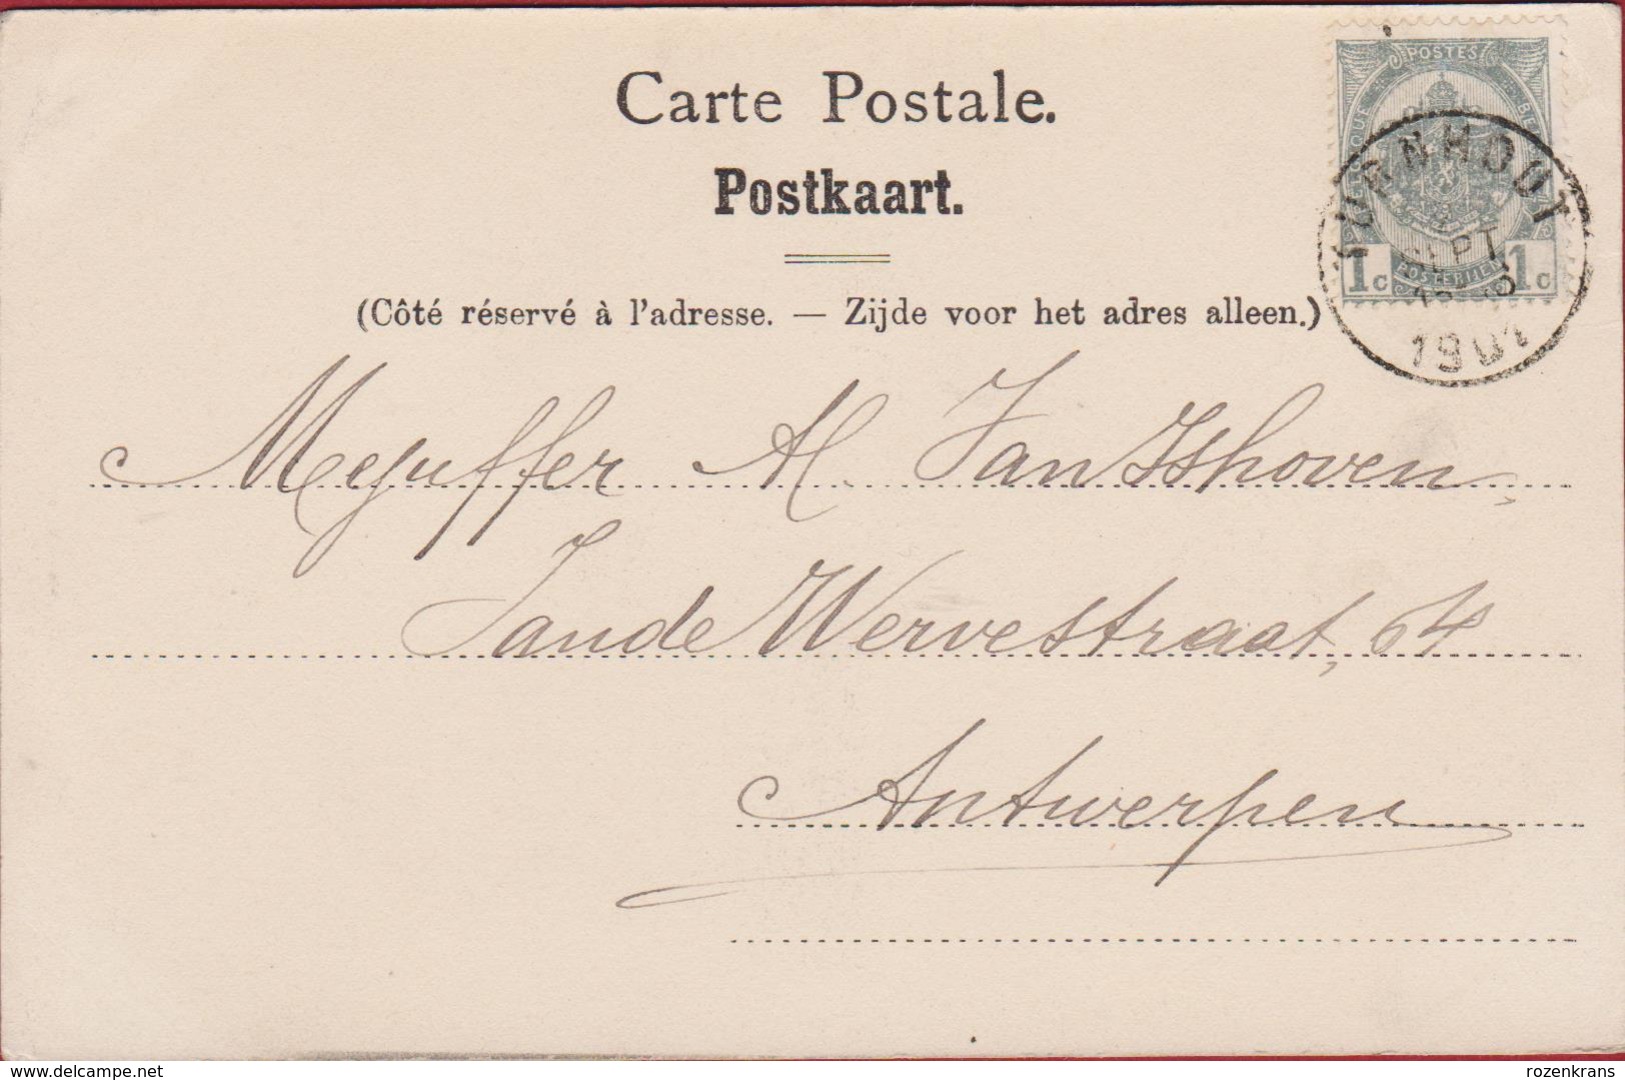 Carte Postale.
Postkaart.
(Côté réservé à l'adresse. — Zijde voor het adres alleen.)
POSTES
POSTERIJEN
1c 1c
TURNHOUT
SEPT
1901
Mejuffer M. Van Ishoven,
Vande Wervestraat, 64
Antwerpen
delcampe.net
rozenkrans